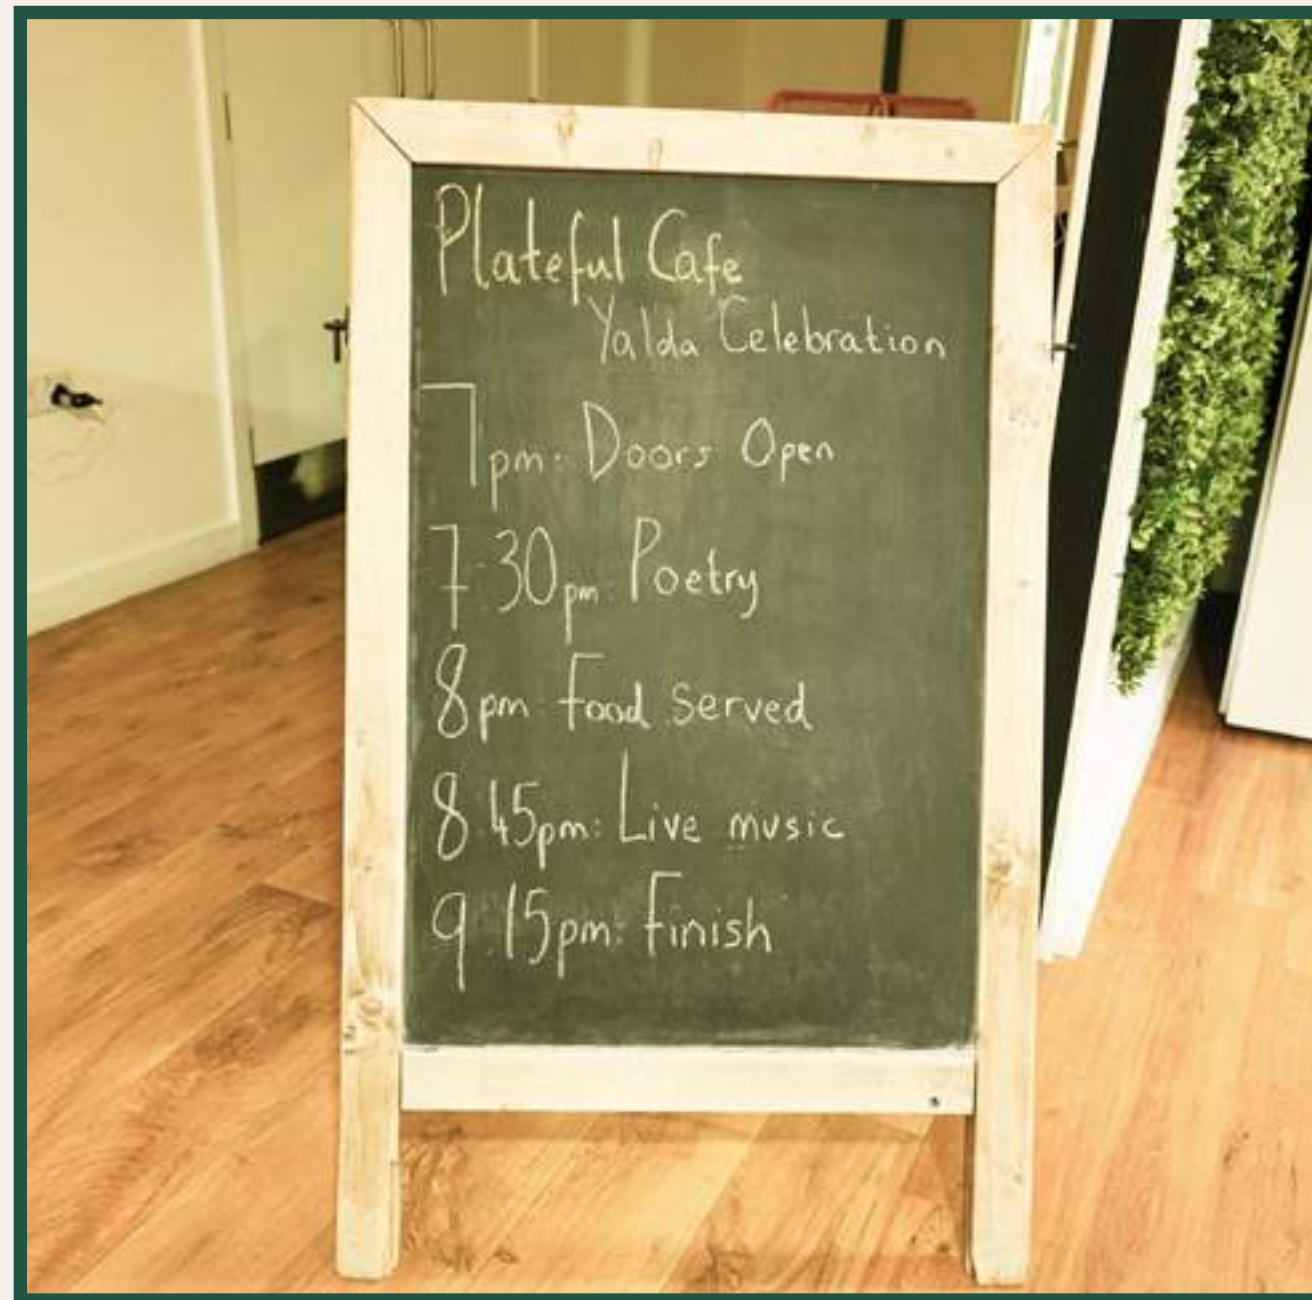 Plateful Cafe
Yalda Celebration
7pm: Doors Open
7:30pm Poetry
8pm Food served
8:45pm: Live music
9:15pm: Finish